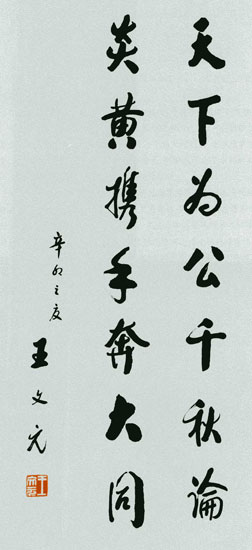 天下为公千秋论
炎黄携手奔大同
辛卯之夏
王文元